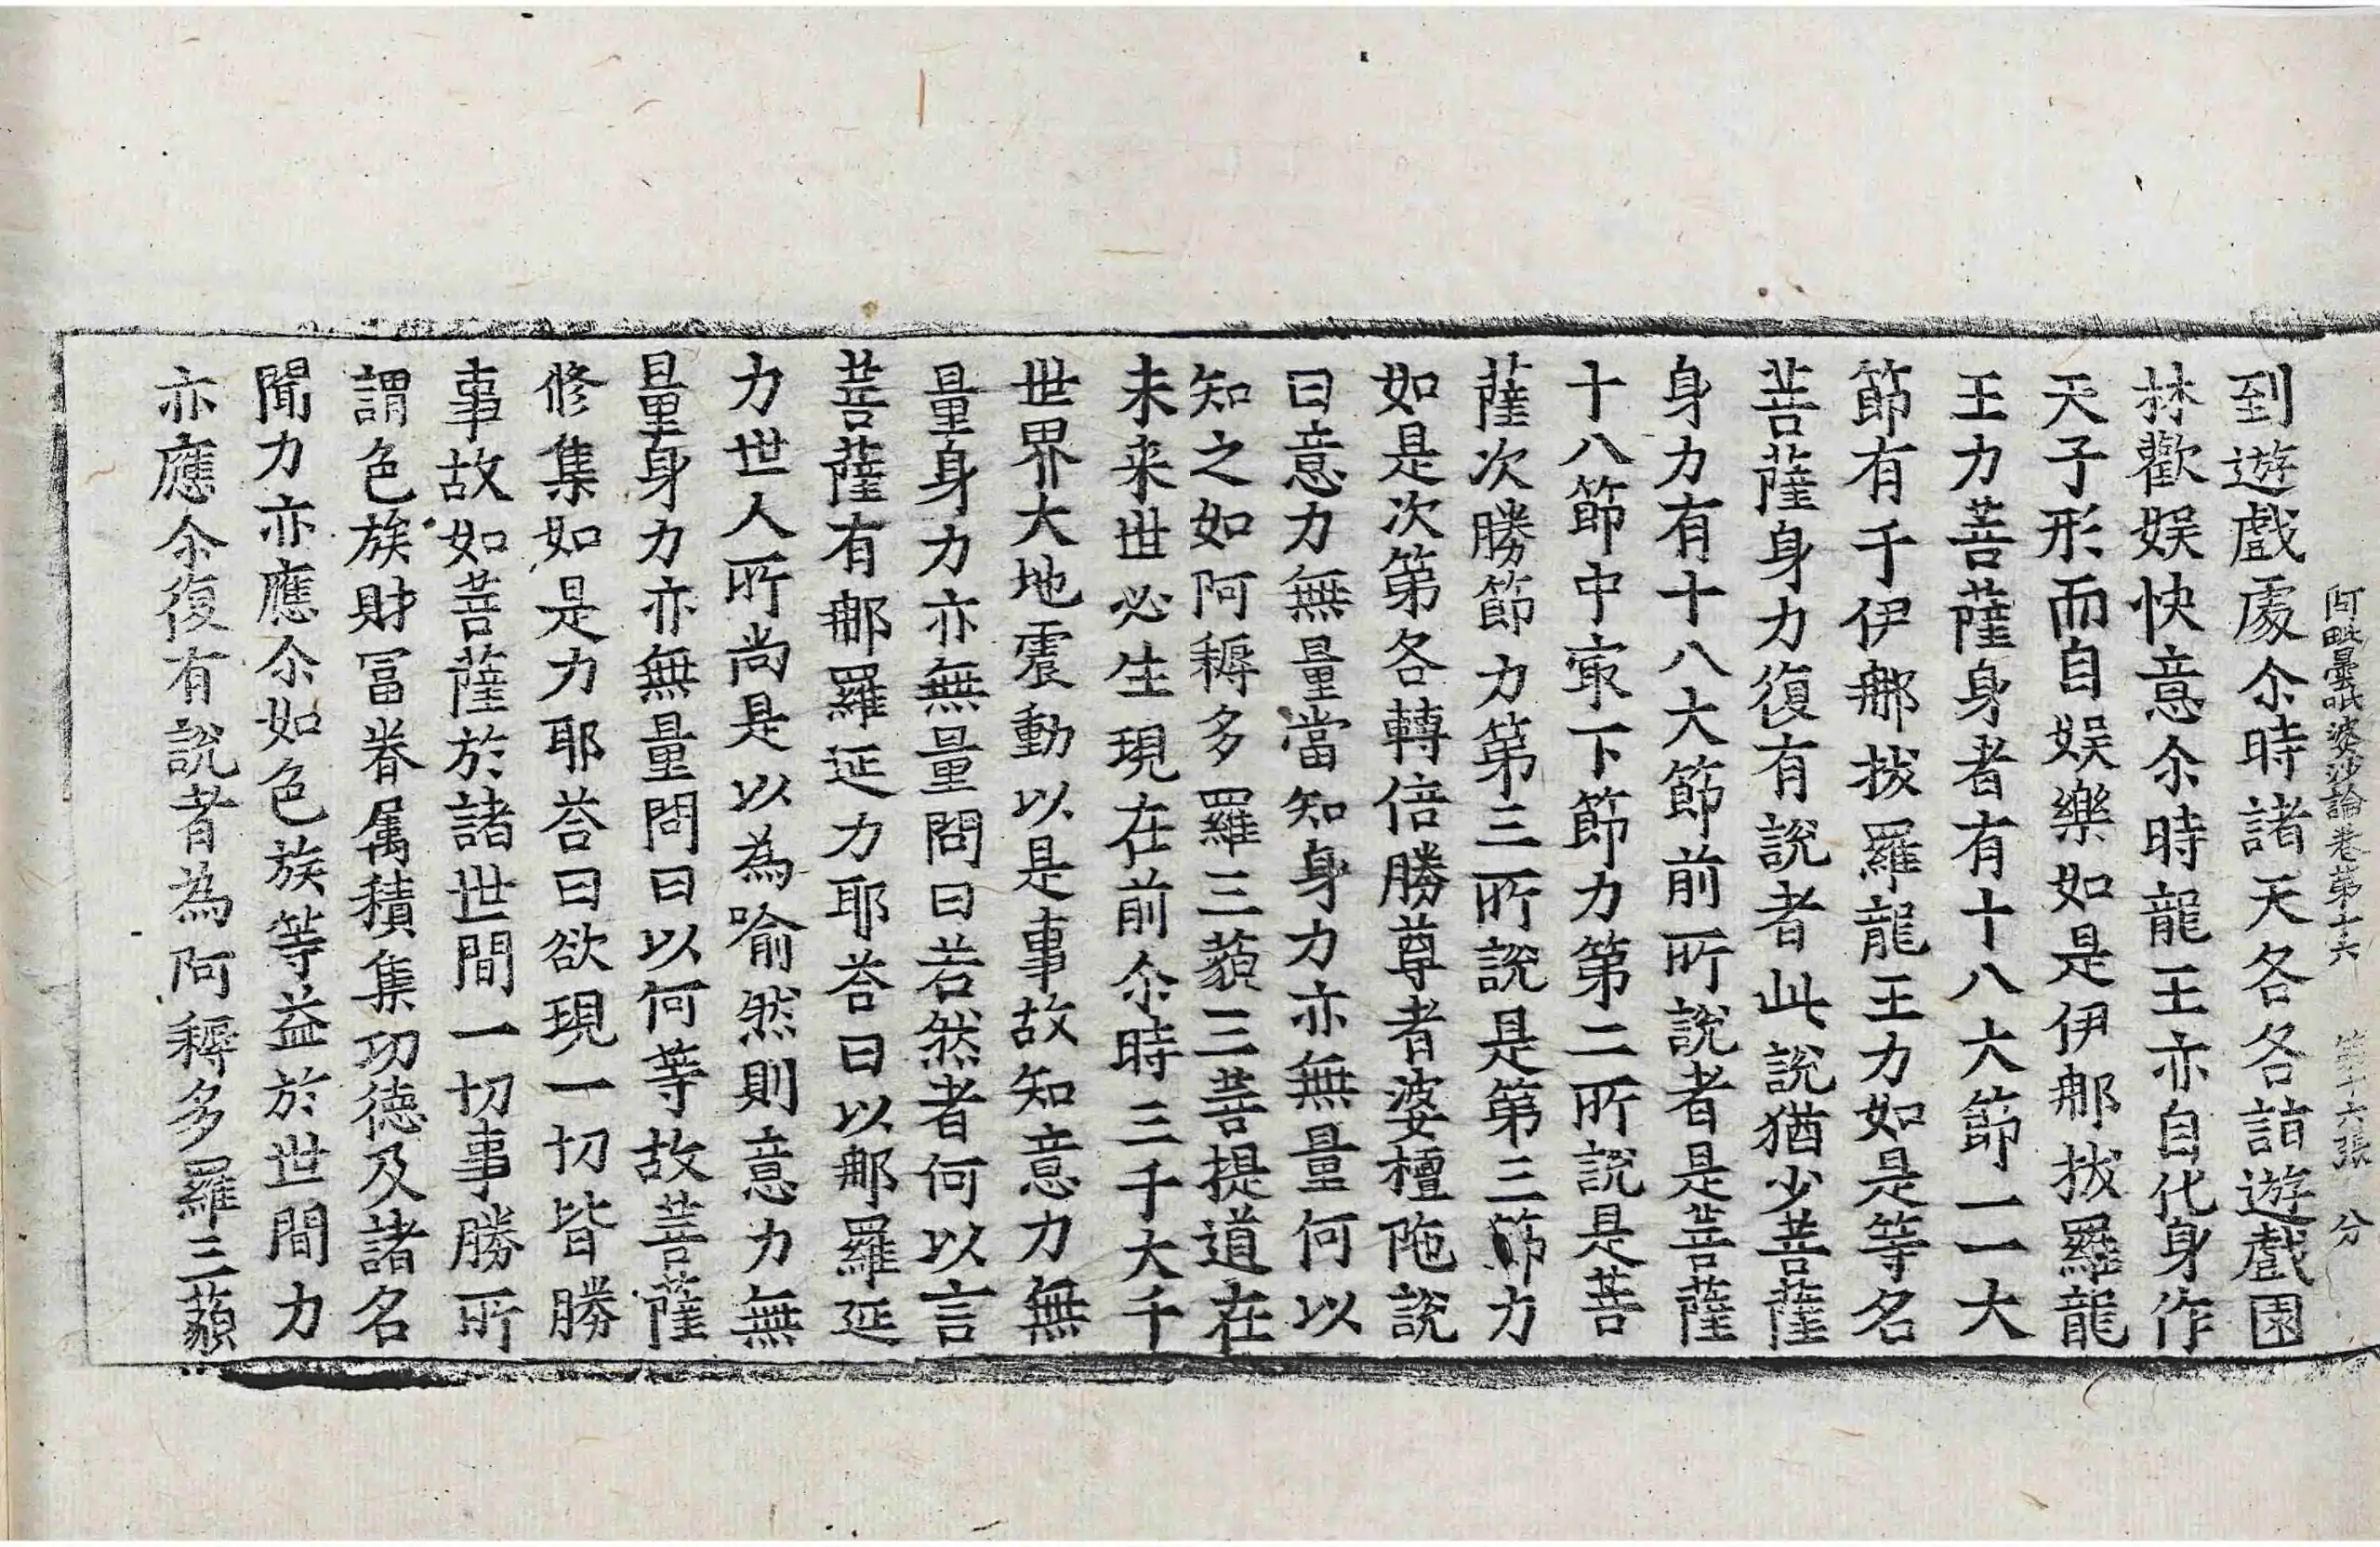 阿毗曇毗婆沙論卷第十六　第十六張　分
到遊戲處尒時諸天各各詣遊戲園
林歡娛快意尒時龍王亦自化身作
天子形而自娛樂如是伊𨚗拔羅龍
王力菩薩身者有十八大節一一大
節有千伊𨚗拔羅龍王力如是等名
菩薩身力復有說者此說猶少菩薩
身力有十八大節前所說者是菩薩
十八節中冣下節力第二所說是菩
薩次勝節力第三所說是第三節力
如是次第各轉倍勝尊者婆檀陁說
曰意力無量當知身力亦無量何以
知之如阿耨多羅三藐三菩提道在
未来世必生現在前尒時三千大千
世界大地震動以是事故知意力無
量身力亦無量問曰若然者何以言
菩薩有𨚗羅延力耶荅曰以𨚗羅延
力世人所尚是以為喻然則意力無
量身力亦無量問曰以何等故菩薩
修集如是力耶荅曰欲現一切皆勝
事故如菩薩於諸世間一切事勝所
謂色族財冨眷属積集功德及諸名
聞力亦應尒如色族等益於世間力
亦應尒復有說者為阿耨多羅三藐